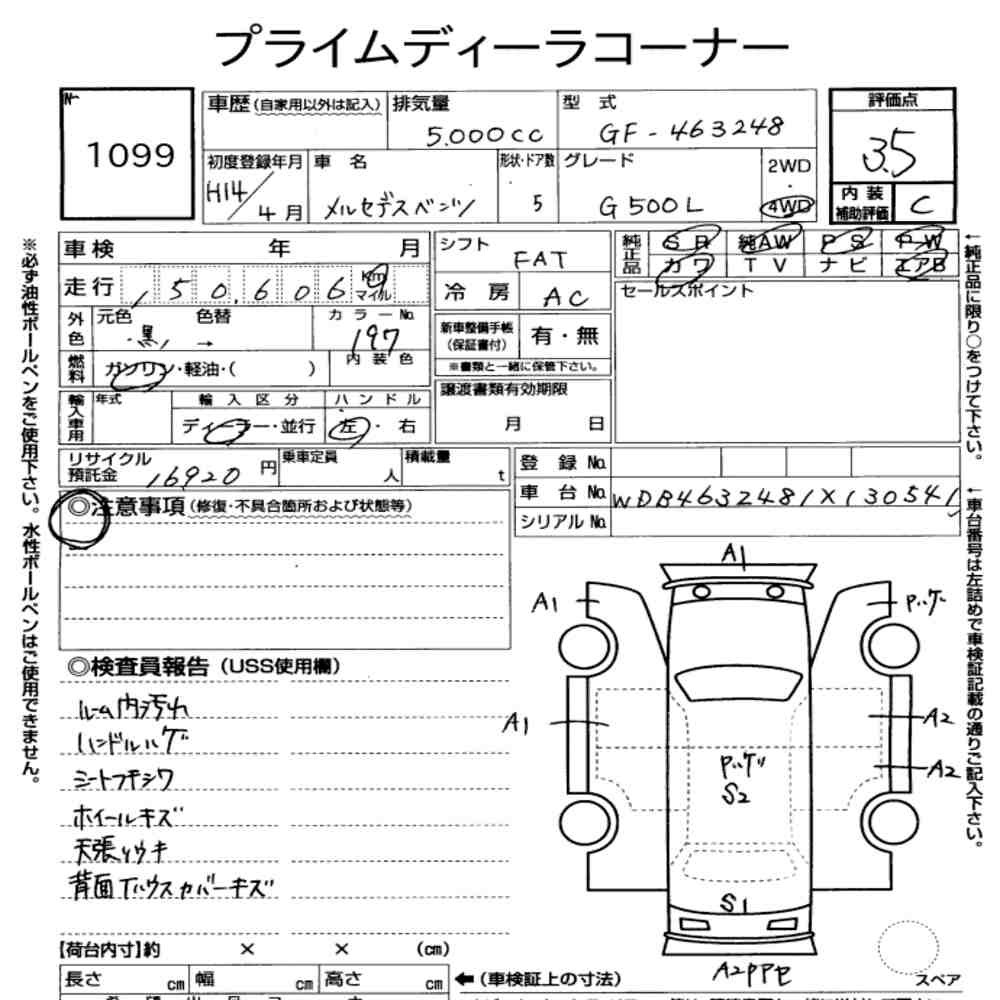 プライムディーラコーナー
№
1099
車歴(自家用以外は記入)
排気量
5.000cc
型 式
GF-463248
評価点
3.5
初度登録年月
H14/4月
車 名
メルセデスベンツ
形状・ドア数
5
グレード
G500L
2WD
・
4WD
内装
補助評価
C
車検 年 月
シフト
FAT
純正品
SR 純AW PS PW
カワ TV ナビ エアB
走行 150,606 Km マイル
冷房 AC
セールスポイント
外色
元色 色替
黒 →
カラーNo.
197
新車整備手帳
(保証書付)
有・無
※書類と一緒に保管下さい。
燃料
ガソリン・軽油・( )
内装色
譲渡書類有効期限
月 日
輸入車用
年式
輸入区分
ディーラー・並行
ハンドル
左・右
リサイクル
預託金 16920円
乗車定員 人
積載量 t
登録No.
車台No. WDB4632481X130541
シリアルNo.
◎注意事項(修復・不具合箇所および状態等)
◎検査員報告(USS使用欄)
ルーム内汚れ
ハンドルハゲ
シートフキシワ
ホイールキズ
天張りウキ
背面Tハウスカバーキズ
A1
A1
A1
A2
A2
S2
S1
スペア
【荷台内寸】約 × × (cm)
長さ cm 幅 cm 高さ cm
←(車検証上の寸法)
※必ず油性ボールペンをご使用下さい。水性ボールペンはご使用できません。
←純正品に限り○をつけて下さい。
←車台番号は左詰めで車検証記載の通りご記入下さい。